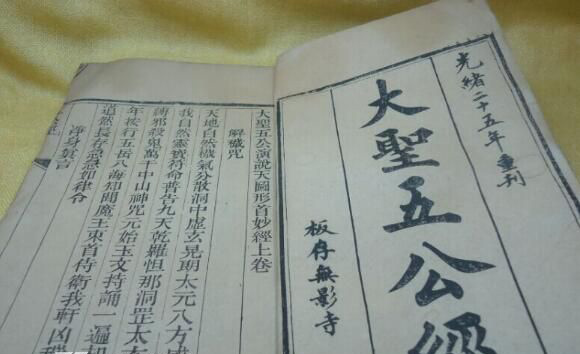 光緒二十五年重刊
大聖五公經
板存無影寺
大聖五公演說天圖形首妙經上卷
解穢咒
天地自然穢氣分散洞中虛玄晃朗太元八方
我自然靈寶符命普告九天乾羅怛那洞罡太
縛邪殺鬼萬千中山神咒元始玉文持誦一遍
年按行五岳八海知聞魔王束首侍衛我軒凶穢
道然長存急急如律令
淨身眞言